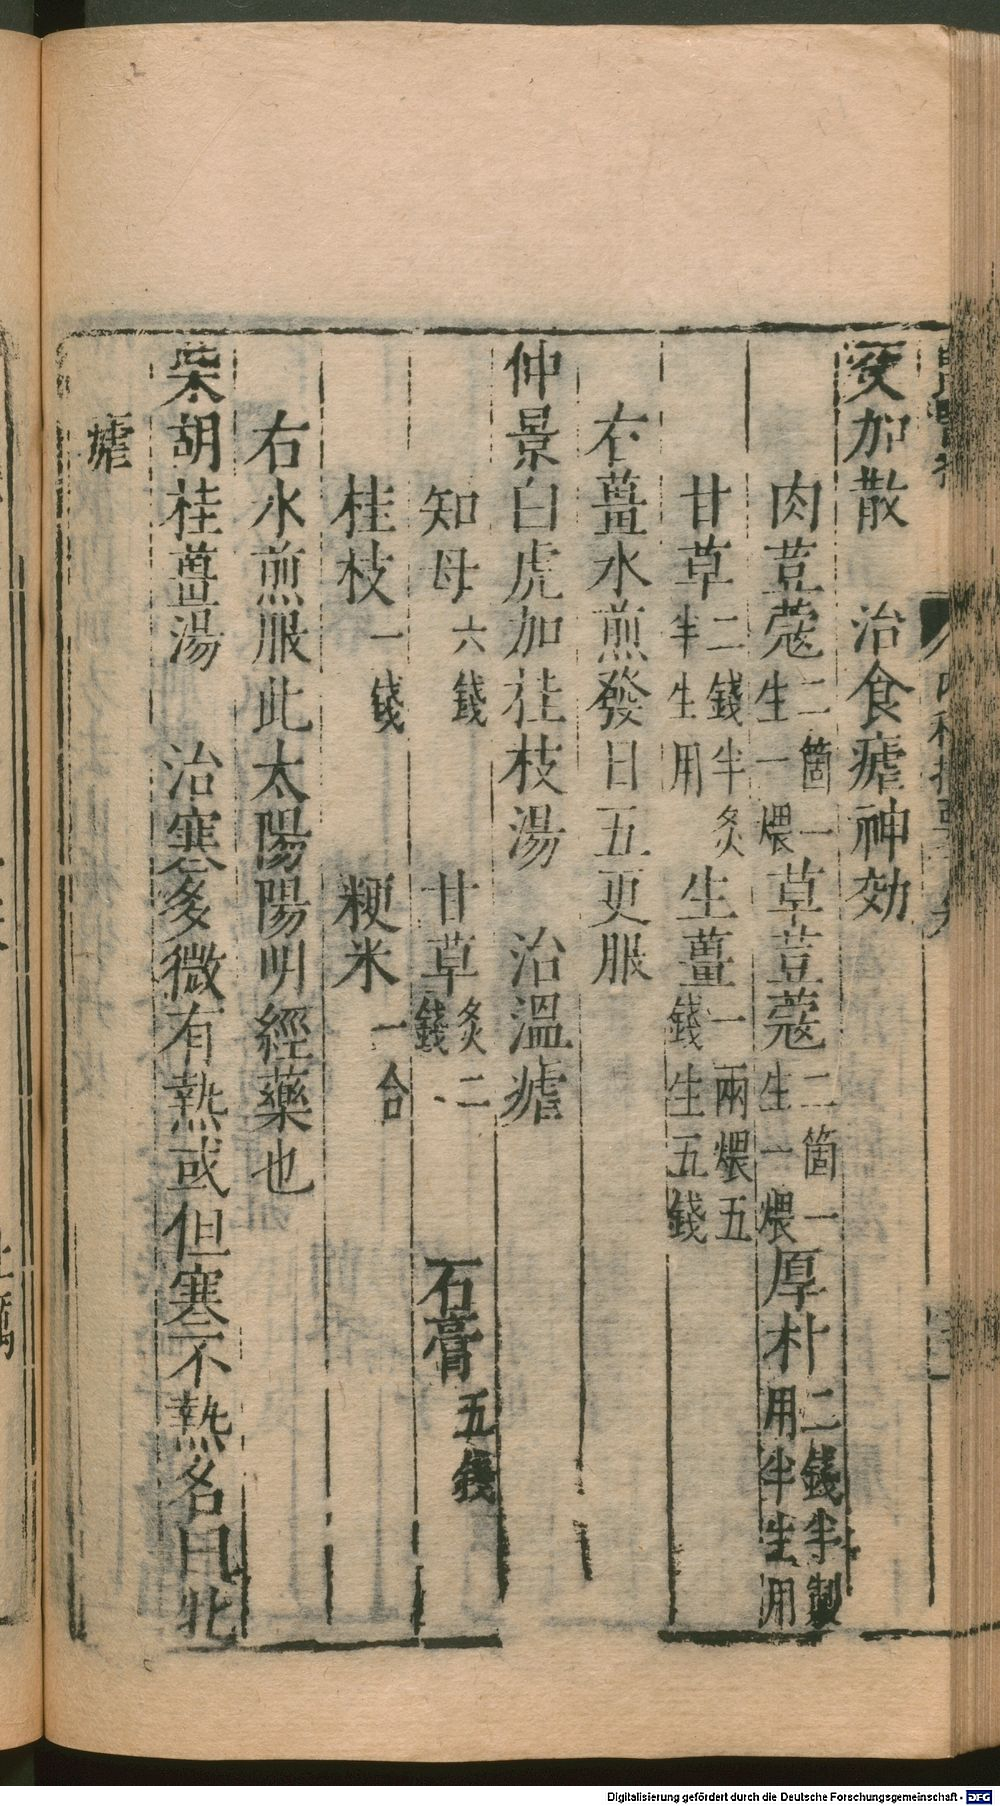 交加散　治食瘧神効
肉荳蔻二箇一生一煨草荳蔻二箇一生一煨厚朴二錢半製用半生用
甘草二錢半炙半生用　生薑一兩煨五錢生五錢
右薑水煎發日五更服
仲景白虎加桂枝湯　治溫瘧
知母六錢　甘草炙二錢　石膏五錢
桂枝一錢　粳米一合
右水煎服此太陽陽明經藥也
柴胡桂薑湯　治寒多微有熱或但寒不熱名曰牝
瘧
Digitalisierung gefördert durch die Deutsche Forschungsgemeinschaft - DFG